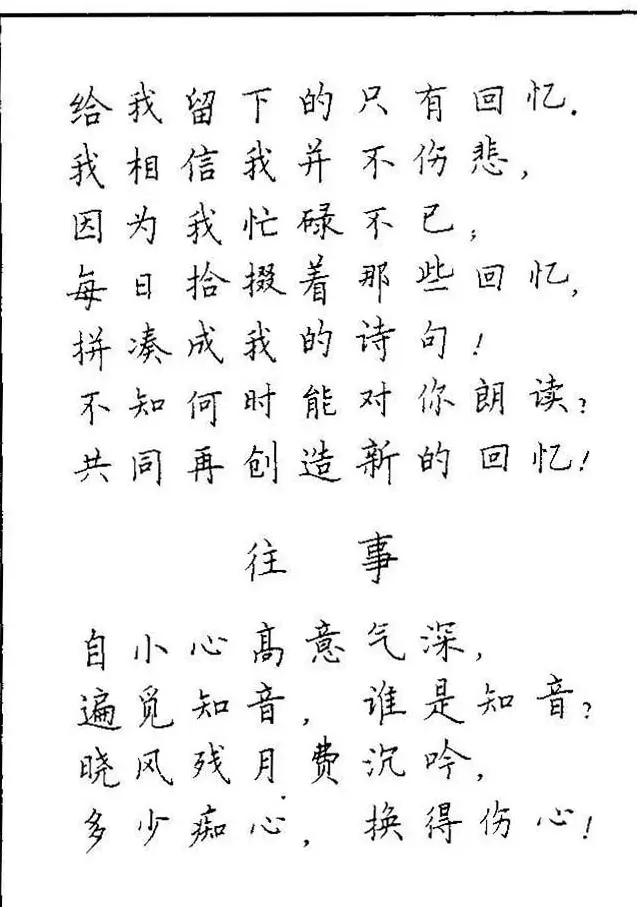 给我留下的只有回忆.
我相信我并不伤悲,
因为我忙碌不已;
每日拾掇着那些回忆,
拼凑成我的诗句!
不知何时能对你朗读?
共同再创造新的回忆!
往事
自小心高意气深,
遍觅知音, 谁是知音?
晓风残月费沉吟,
多少痴心, 换得伤心!